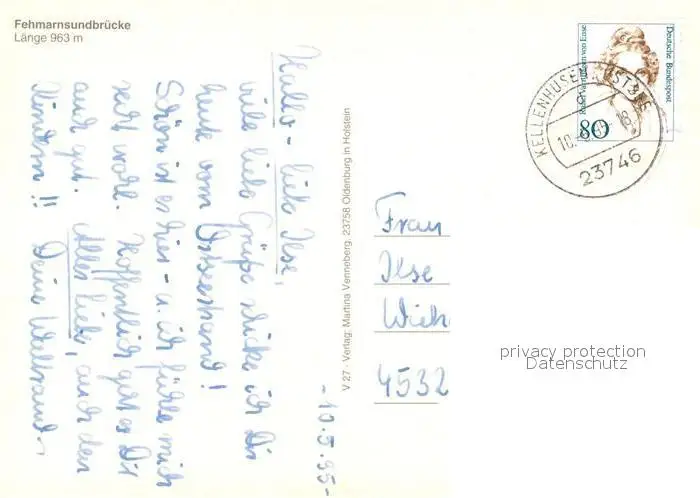 Fehmarnsundbrücke
Länge 963 m
Hallo – liebe Ilse,
viele liebe Grüße schicke ich Dir
heute vom Ostseestrand!
Schön ist es hier – u. ich fühle mich
sehr wohl. Hoffentlich geht es Dir
auch gut. Alles Liebe, auch den
Kindern!! Deine Waltraud –
- 10.5.95 -
V 27 · Verlag: Martina Venneberg, 23758 Oldenburg in Holstein
Deutsche Bundespost
80
KELLENHUSEN, OSTSEE
10.
18
23746
Frau
Ilse
Wieh
4532
privacy protection
Datenschutz